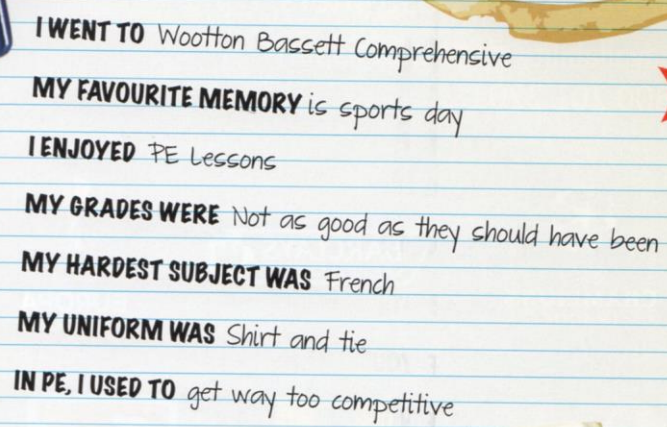 I WENT TO Wootton Bassett Comprehensive
MY FAVOURITE MEMORY is sports day
I ENJOYED PE Lessons
MY GRADES WERE Not as good as they should have been
MY HARDEST SUBJECT WAS French
MY UNIFORM WAS Shirt and tie
IN PE, I USED TO get way too competitive